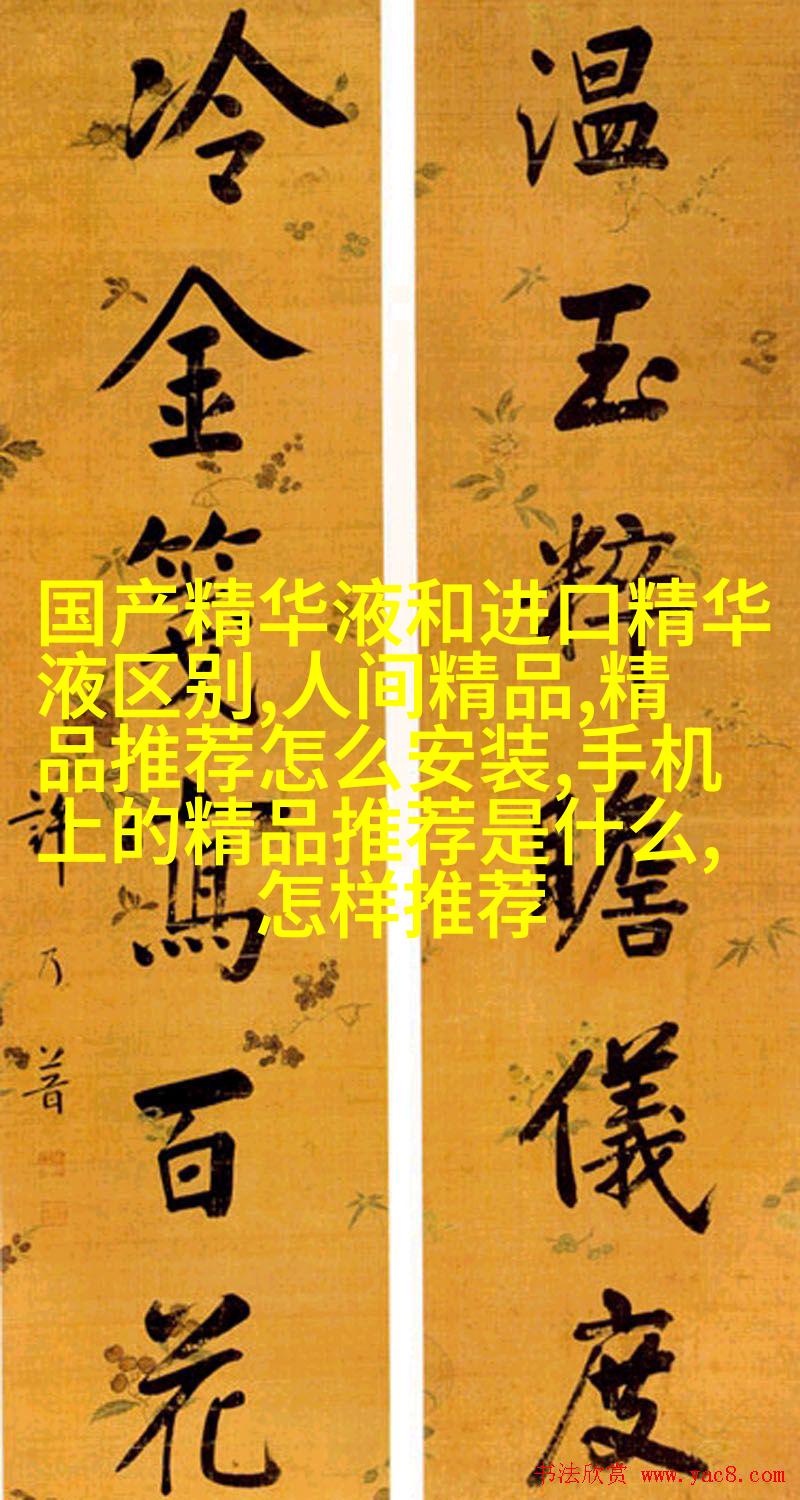 温玉粹瞻儀度
冷金箋寫百花
許乃普
国产精华液和进口精华
液区别,人间精品,精
品推荐怎么安装,手机
上的精品推荐是什么,
怎样推荐
书法欣赏 www.yac8.com